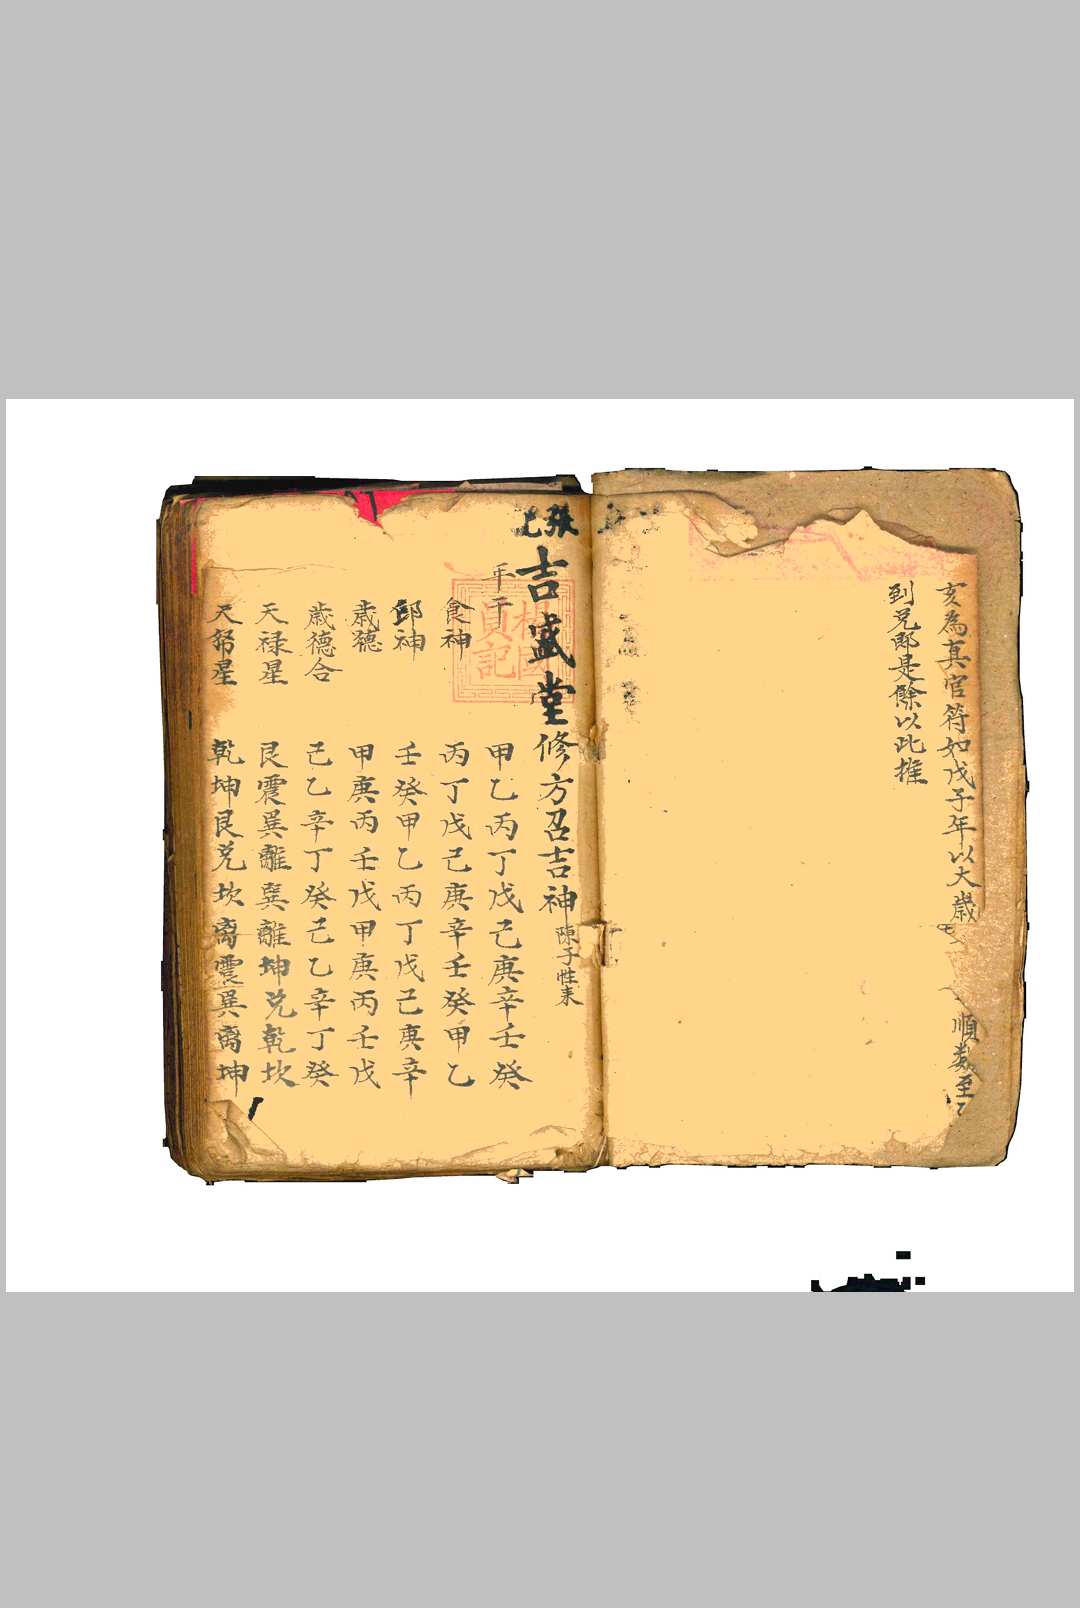 亥為真官符如戊子年以大歲
順数至
到兌即是餘以此推
張
吉盛堂
修方召吉神
陳子性末
年干
甲乙丙丁戊己庚辛壬癸
食神
丙丁戊己庚辛壬癸甲乙
邱神
壬癸甲乙丙丁戊己庚辛
歲德
甲庚丙壬戊甲庚丙壬戊
歲德合
己乙辛丁癸己乙辛丁癸
天禄星
艮震巽離巽離坤兌乾坎
天帑星
乾坤艮兌坎离震巽离坤
員記